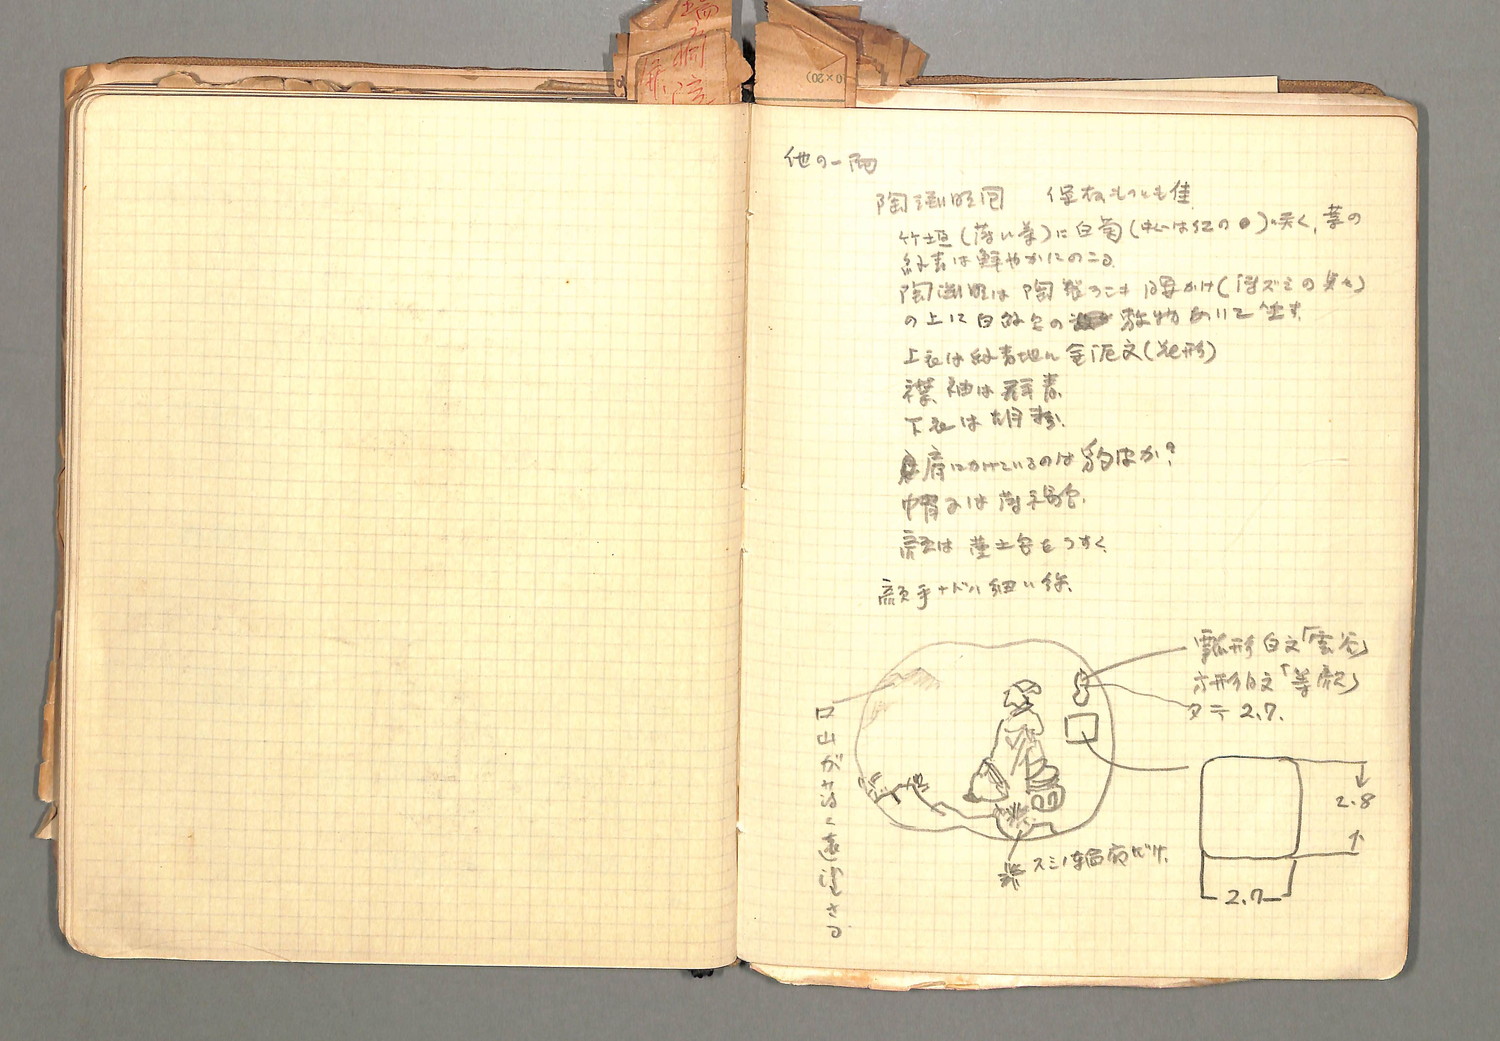 他の一隅
陶渊明図 保存もっとも佳
竹垣(薄い茶)に白菊(中心は紅の●)咲く,葉の
緑青は鮮やかにのこる
陶渊明は 陶製 腰かけ(薄ズミの具)
の上に白緑色の 敷物 しいて 坐す
上衣は緑青地に 金泥文(花形)
襟、袖は群青
下衣は胡粉.
肩にかけているのは豹皮か?
帽子は 薄褐色.
顔は 黄土色をうすく
顔手ナドハ 細い線.
瓢形 白文「雲谷」
方形白文「等顔」
タテ 2.7.
山がなく遠望さる
2.8
スミノ輪廓だけ.
2.7
0×20)